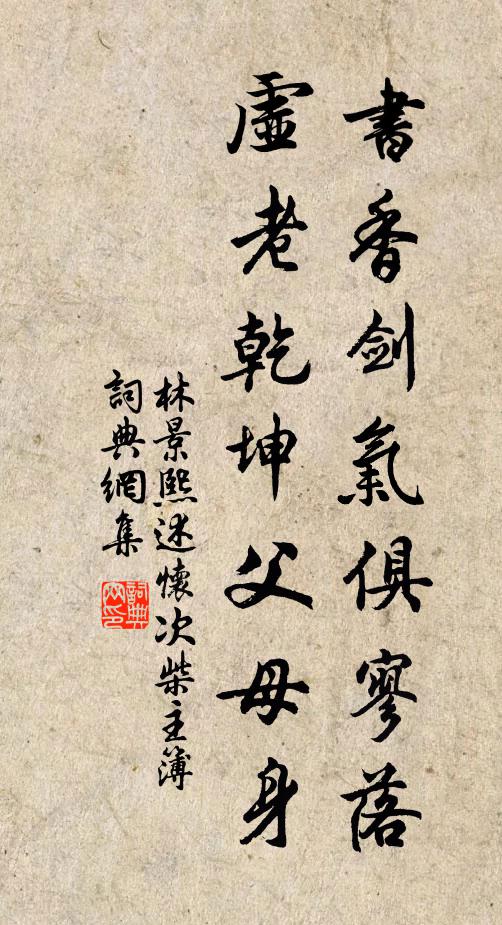 書香劍氣俱寥落
虛老乾坤父母身
林景熙述懷次柴主簿
詞典網集
詞典網印